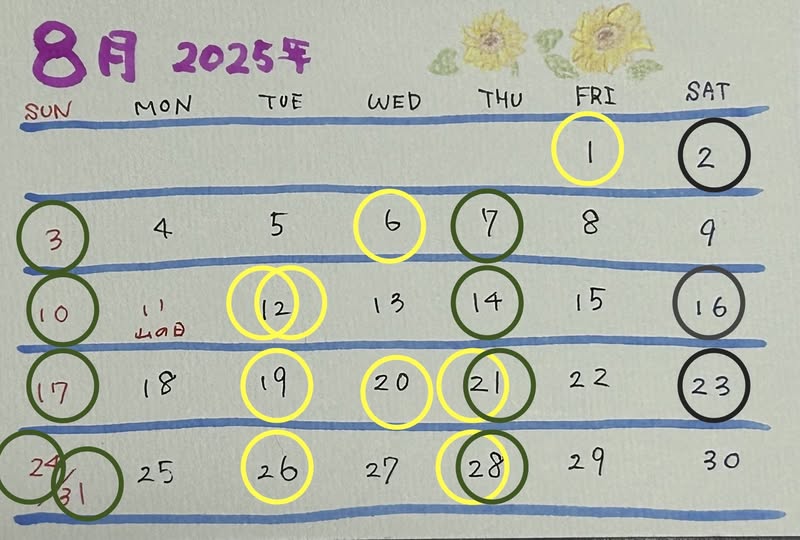 8月 2025年
SUN MON TUE WED THU FRI SAT
1 2
3 4 5 6 7 8 9
10 11 12 13 14 15 16
山の日
17 18 19 20 21 22 23
24/31 25 26 27 28 29 30